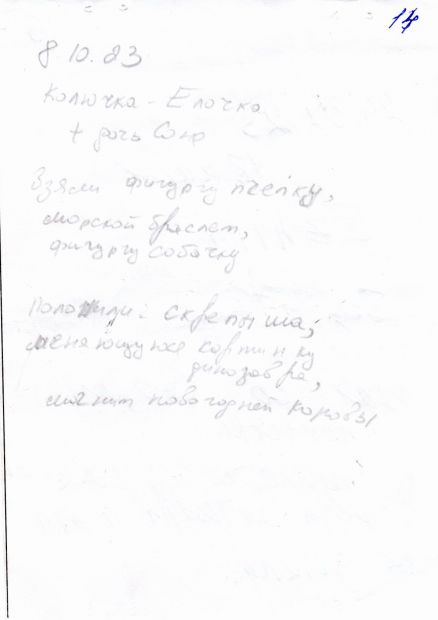 14
8.10.23
Колючка - Ёлочка
+ дочь Соня
Взяли фигурку пчёлку,
морской браслет,
фигурку собачку
Положили: скрепыша,
меняющуюся картинку
динозавра,
магнит новогодней коровы